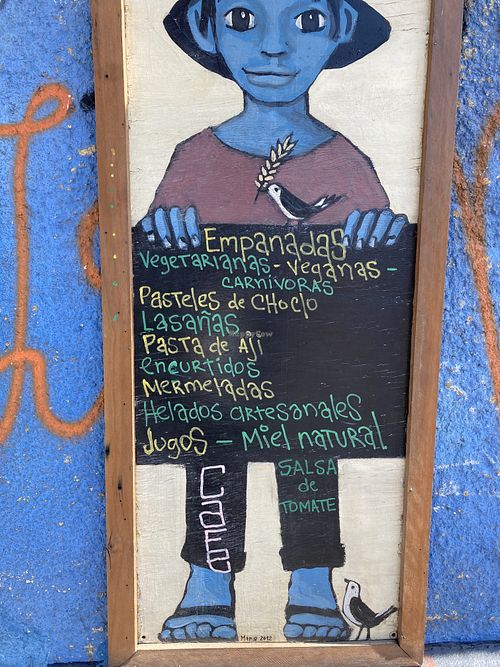 Empanadas
Vegetarianas - Veganas -
Carnívoras
Pasteles de CHoclo
Lasañas
Pasta de Ají
encurtidos
Mermeladas
Helados artesanales
Jugos - Miel natural
SALSA
de
TOMATE
Cafe